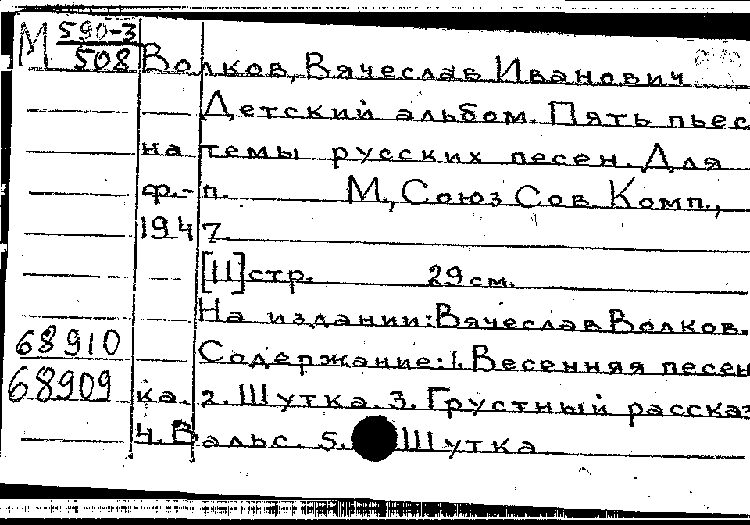 М 590-3
508 Волков, Вячеслав Иванович
Детский альбом. Пять пьес
на темы русских песен. Для
ф.-п. М., Союз Сов. Комп.,
1947.
[11] стр. 29 см.
На издании: Вячеслав Волков.
68910 Содержание: 1. Весенняя песен
68909 ка. 2. Шутка. 3. Грустный рассказ
4. Вальс. 5. Шутка